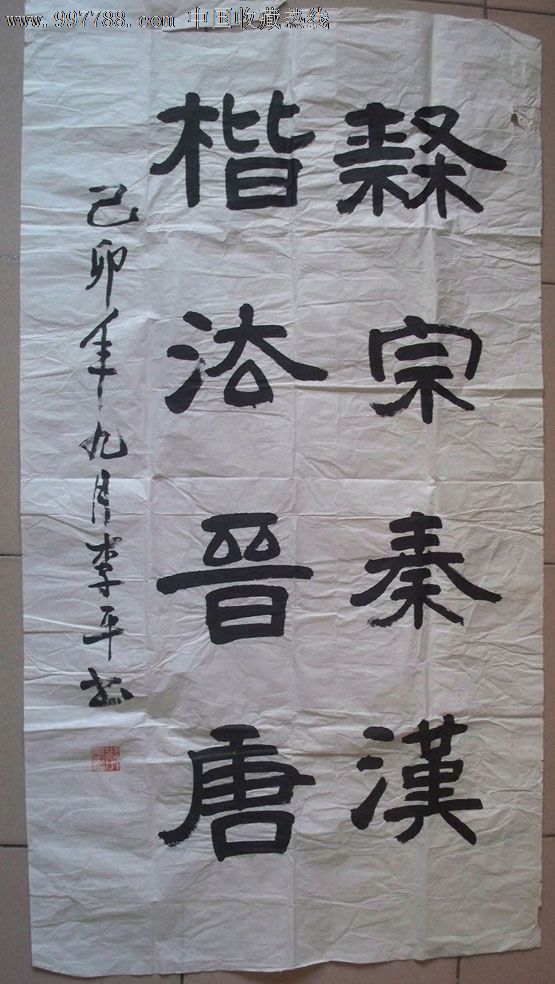 www.997788.com 中国收藏热线
隸宗秦漢
楷法晉唐
己卯年九月李平书